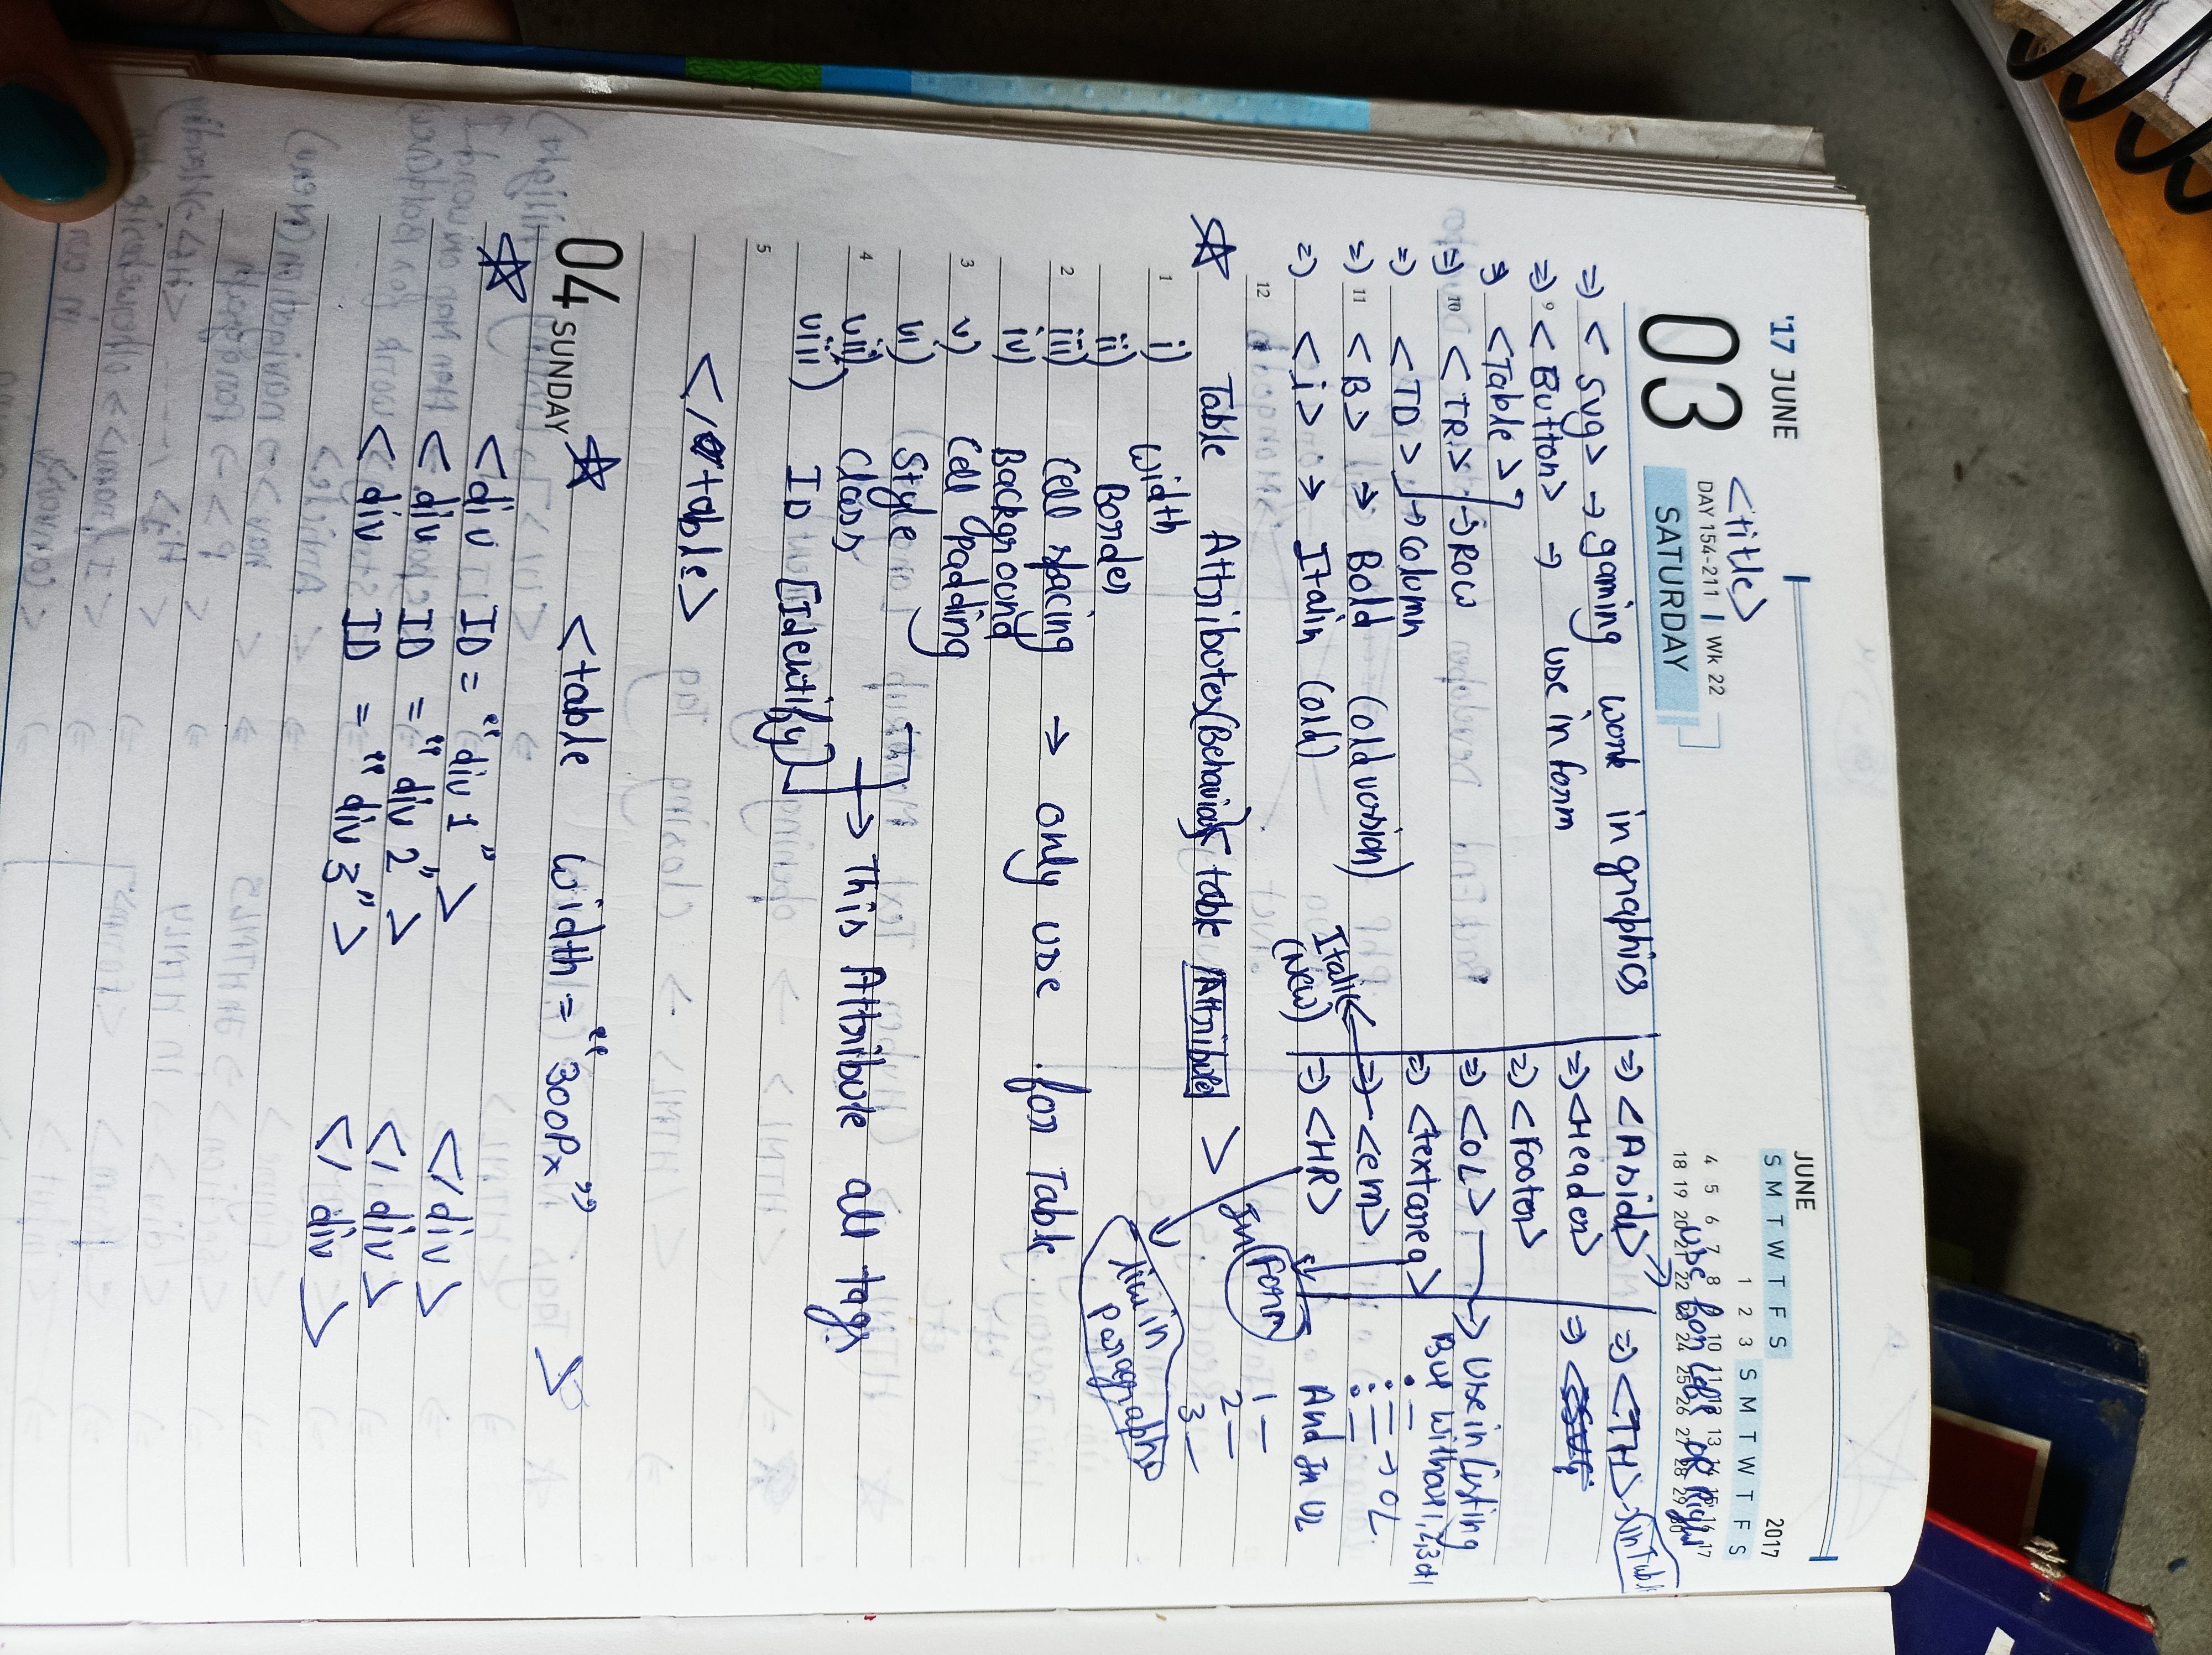 '17 JUNE
03
<title>
DAY 154-211 | Wk 22
SATURDAY
JUNE
2017
S M T W T F S
S M T W T F S
1 2 3
4 5 6 7 8 9 10 11 12 13 14 15 16 17
18 19 20 21 22 23 24 25 26 27 28 29 30
use for left OR Right
=> < svg> → gaming work in graphics
9 => < Button> → use in form
=> <Table >
10 => <TR> → ROW
=> <TD > → Column
11 => <B> → Bold (old version)
=> <i> → Italin (old)
12
=> <Aside>
=> <Header>
=> <Footer>
=> <OL> → Use in Listing
But without 1,2,3
→ OL
And In UL
1 —
2 —
3 —
=> <textarea>
In Form
=> <em>
Italic
(New)
=> <HR>
line in
paragraphs
=> <TH> → in Table
=>
Table Attributes (Behavior) < table Attributes >
1 i) width
ii) Border
2 iii) Cell spacing → only use for Table
iv) Background
3 v) Cell Padding
vi) Style
4 vii) Class → This Attribute all tags
viii) ID [Identify]
5
</table>
04 SUNDAY <table width = "300Px" >
<div ID = "div 1" > </div>
<div ID = "div 2" > </div>
<div ID = "div 3" > </div>